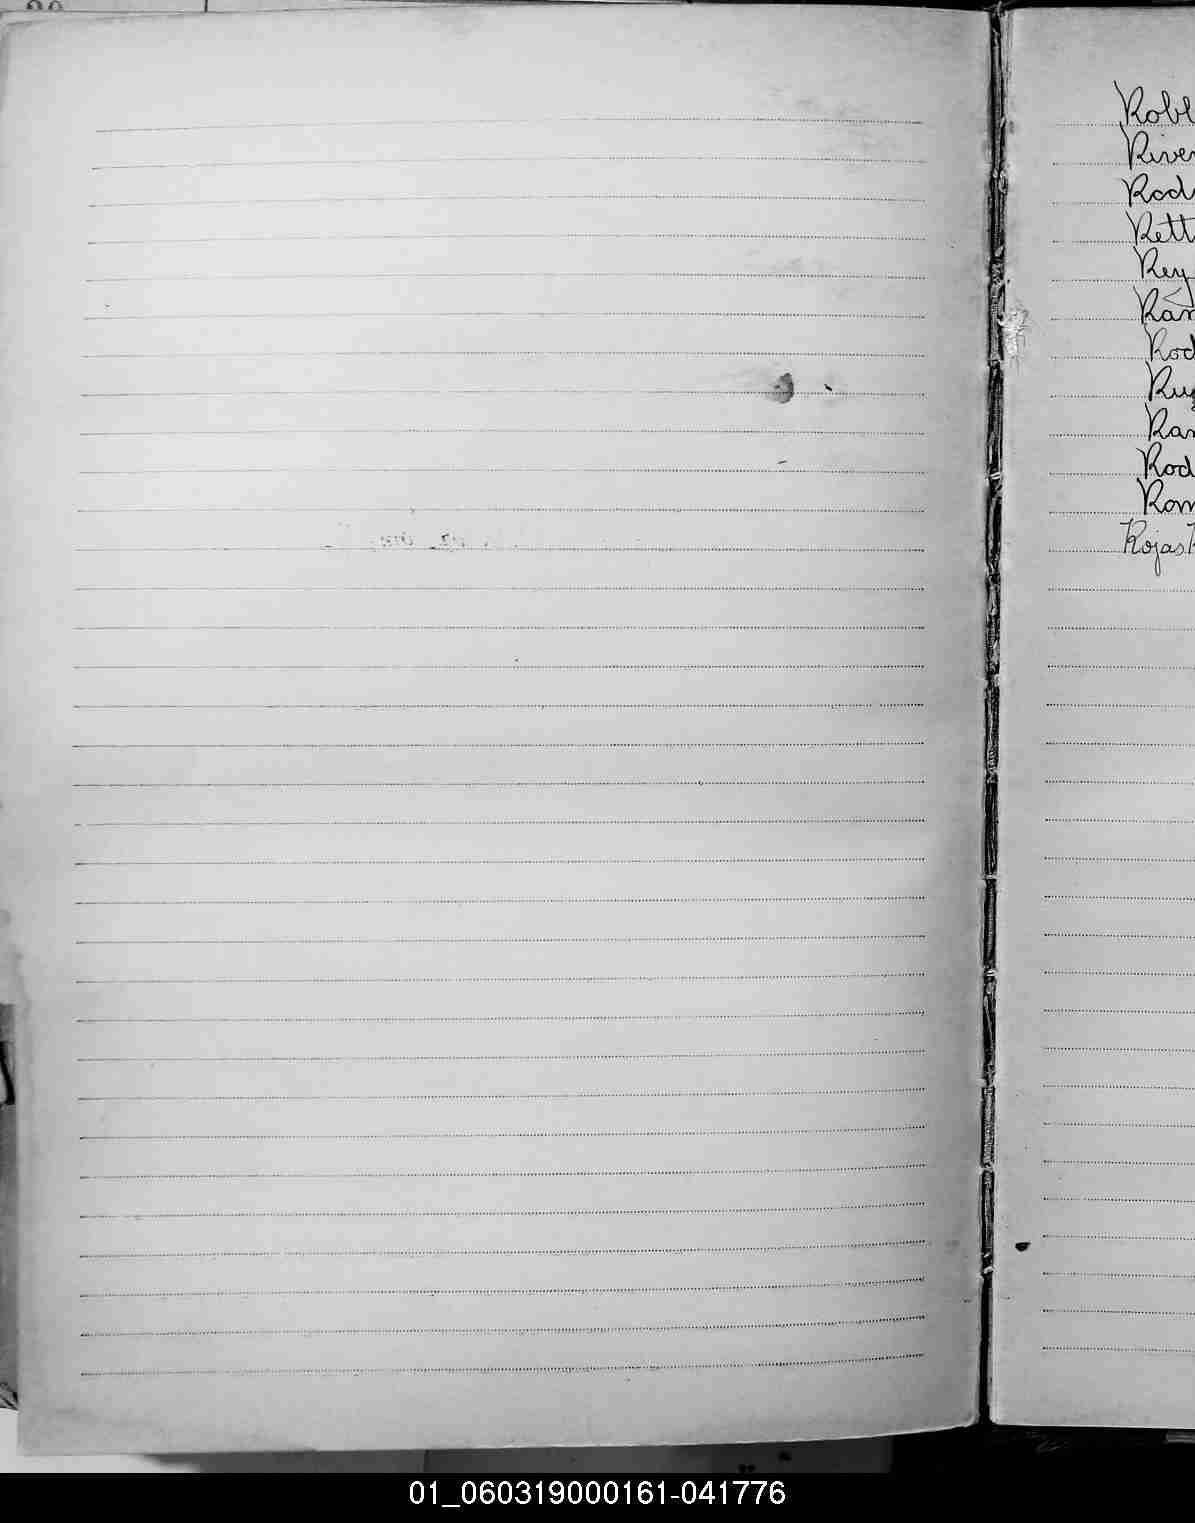 Robl
River
Rod
Rett
Rey
Ram
Rod
Ru
Ram
Rod
Rom
Rojas R
01_060319000161-041776